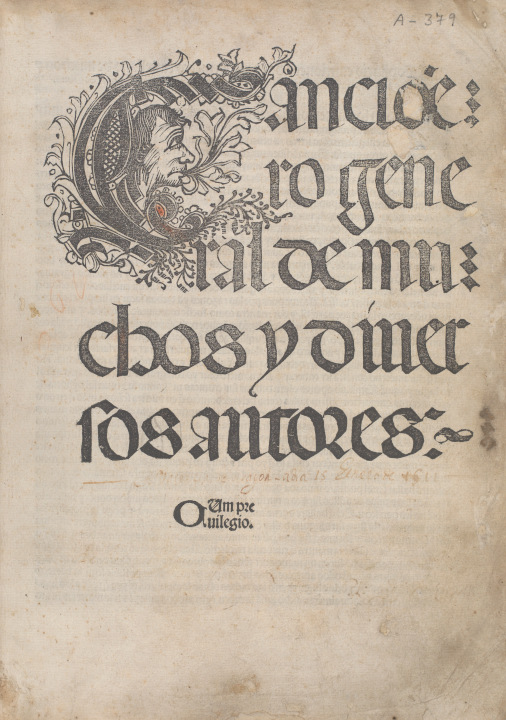 A-379
Canciõe:
ro gene
ral de mu:
chos y diuer
sos autores:~
15 1611
Cum pre
uilegio.